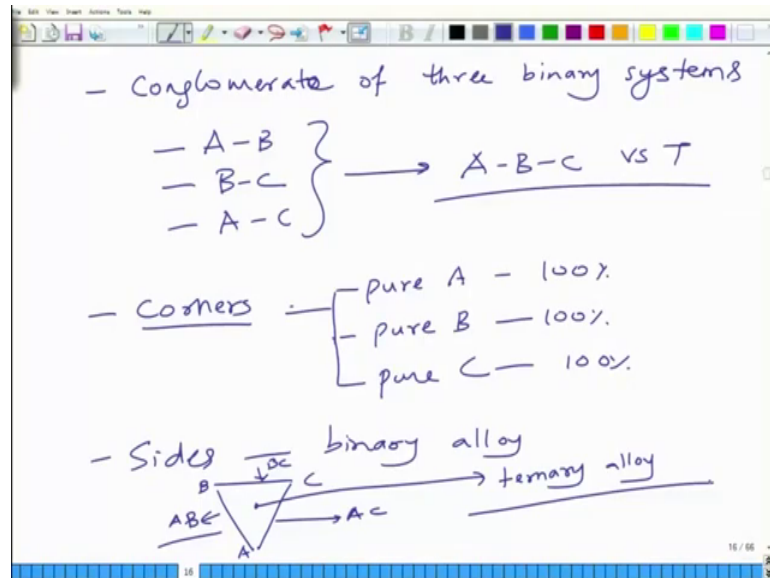 File Edit View Insert Actions Tools Help
- Conglomerate of three binary systems
- A-B
- B-C
- A-C
A-B-C vs T
- Corners
pure A - 100%
- pure B - 100%
pure C - 100%
- Sides - binary alloy
BC
B C
ternary alloy
AB
AC
A
16 / 66
16